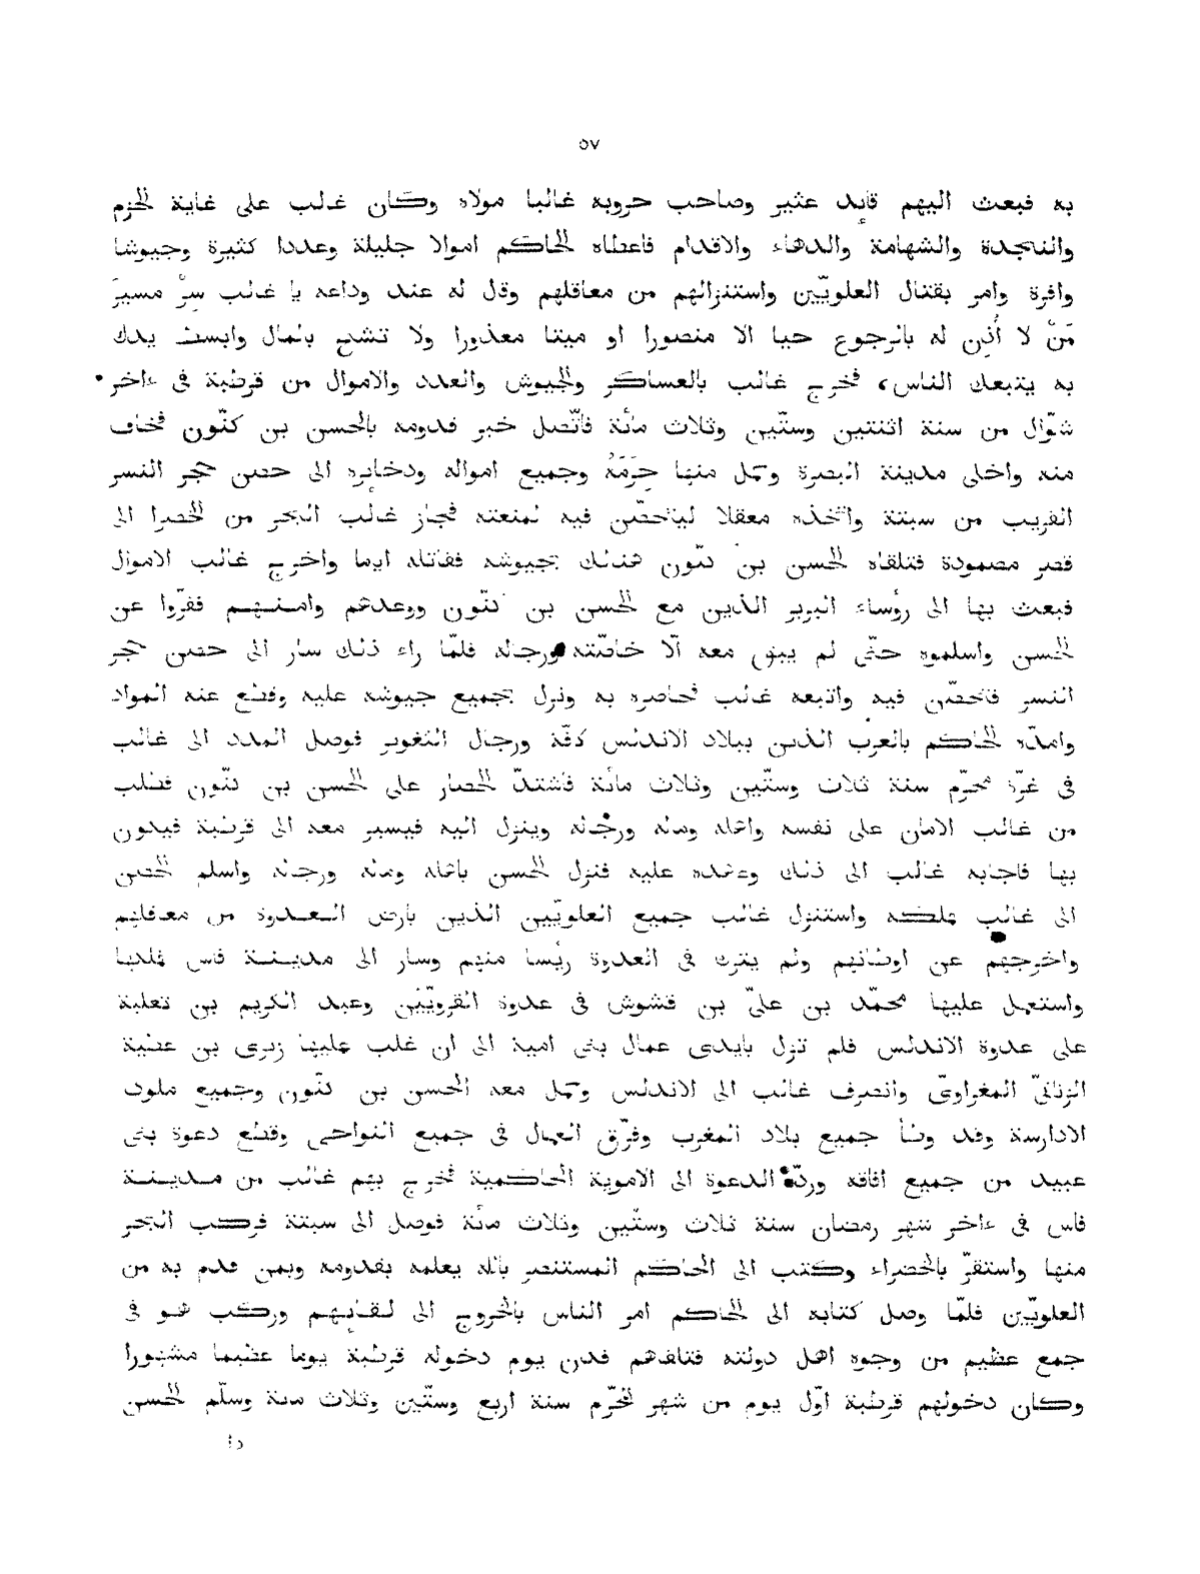 ٥٧
به فبعث اليهم قائد عثير وصاحب حروبه غالبا مولاه وكان غالب على غاية الحزم
والنجدة والشهامة والدهاء والاقدام فاعطاه الحاكم اموالا جليلة وعددا كثيرة وجيوشا
وافرة وامر بقتال العلويّين واستنزالهم من معاقلهم وقال له عند وداعه يا غالب سِرْ مسيرَ
مَنْ لا أُذِن له بالرجوع حيا الا منصورا او ميتا معذورا ولا تشح بالمال وابسط يدك
به يتبعك الناس، فخرج غالب بالعساكر والجيوش والعدد والاموال من قرطبة فى ءاخر
شوّال من سنة اثنتين وستّين وثلاث مائة فاتّصل خبر قدومه بالحسن بن كنّون فخاف
منه واخلى مدينة البصرة وحمل منها حرمه وجميع امواله ودخائره الى حصن حجر النسر
القريب من سبتة واتخذه معقلا ليتحصّن فيه لمنعته فجاز غالب البحر من الخضرا الى
قصر مصمودة فتلقاه الحسن بن كنّون هنالك بجيوشه فقاتله اياما واخرج غالب الاموال
فبعث بها الى رؤساء البربر الذين مع الحسن بن كنّون ووعدهم وامنهم ففرّوا عن
الحسن واسلموه حتّى لم يبق معه الّا خاصّته ورجاله فلمّا راء ذلك سار الى حصن حجر
النسر فتحصّن فيه واتبعه غالب فحاصره به ونزل بجميع جيوشه عليه وقطع عنه المواد
وامدّه الحاكم بالعرب الذين ببلاد الاندلس كافّة ورجال الثغور فوصل المدد الى غالب
فى غرّة محرّم سنة ثلاث وستّين وثلاث مائة فاشتدّ الحصار على الحسن بن كنّون فطلب
من غالب الامان على نفسه واهله وماله ورجاله وينزل اليه فيسير معه الى قرطبة فيكون
بها فاجابه غالب الى ذلك وعاهده عليه فنزل الحسن باهله وماله ورجاله واسلم الحصن
الى غالب فملكه واستنزل غالب جميع العلويّين الذين بارض العدوة من معاقلهم
واخرجهم عن اوطانهم ولم يترك فى العدوة رئسا منهم وسار الى مدينة فاس فملكها
واستعمل عليها محمّد بن علىّ بن قشوش فى عدوة القرويّين وعبد الكريم بن ثعلبة
على عدوة الاندلس فلم تزل بايدى عمال بنى امية الى ان غلب عليها زيرى بن عطية
الزناتىّ المغراوىّ وانصرف غالب الى الاندلس وحمل معه الحسن بن كنّون وجميع ملوك
الادارسة وقد وطأ جميع بلاد المغرب وفرّق العمال فى جميع النواحى وقطع دعوة بنى
عبيد من جميع افاقه وردّ الدعوة الى الاموية الحاكمية فخرج بهم غالب من مدينة
فاس فى ءاخر شهر رمضان سنة ثلاث وستّين وثلاث مائة فوصل الى سبتة فركب البحر
منها واستقرّ بالخضراء وكتب الى الحاكم المستنصر بالله يعلمه بقدومه وبمن قدم به من
العلويّين فلمّا وصل كتابه الى الحاكم امر الناس بالخروج الى لقائهم وركب هو فى
جمع عظيم من وجوه اهل دولته فتلقاهم فكان يوم دخوله قرطبة يوما عظيما مشهورا
وكان دخولهم قرطبة اوّل يوم من شهر محرّم سنة اربع وستّين وثلاث مائة وسلّم الحسن